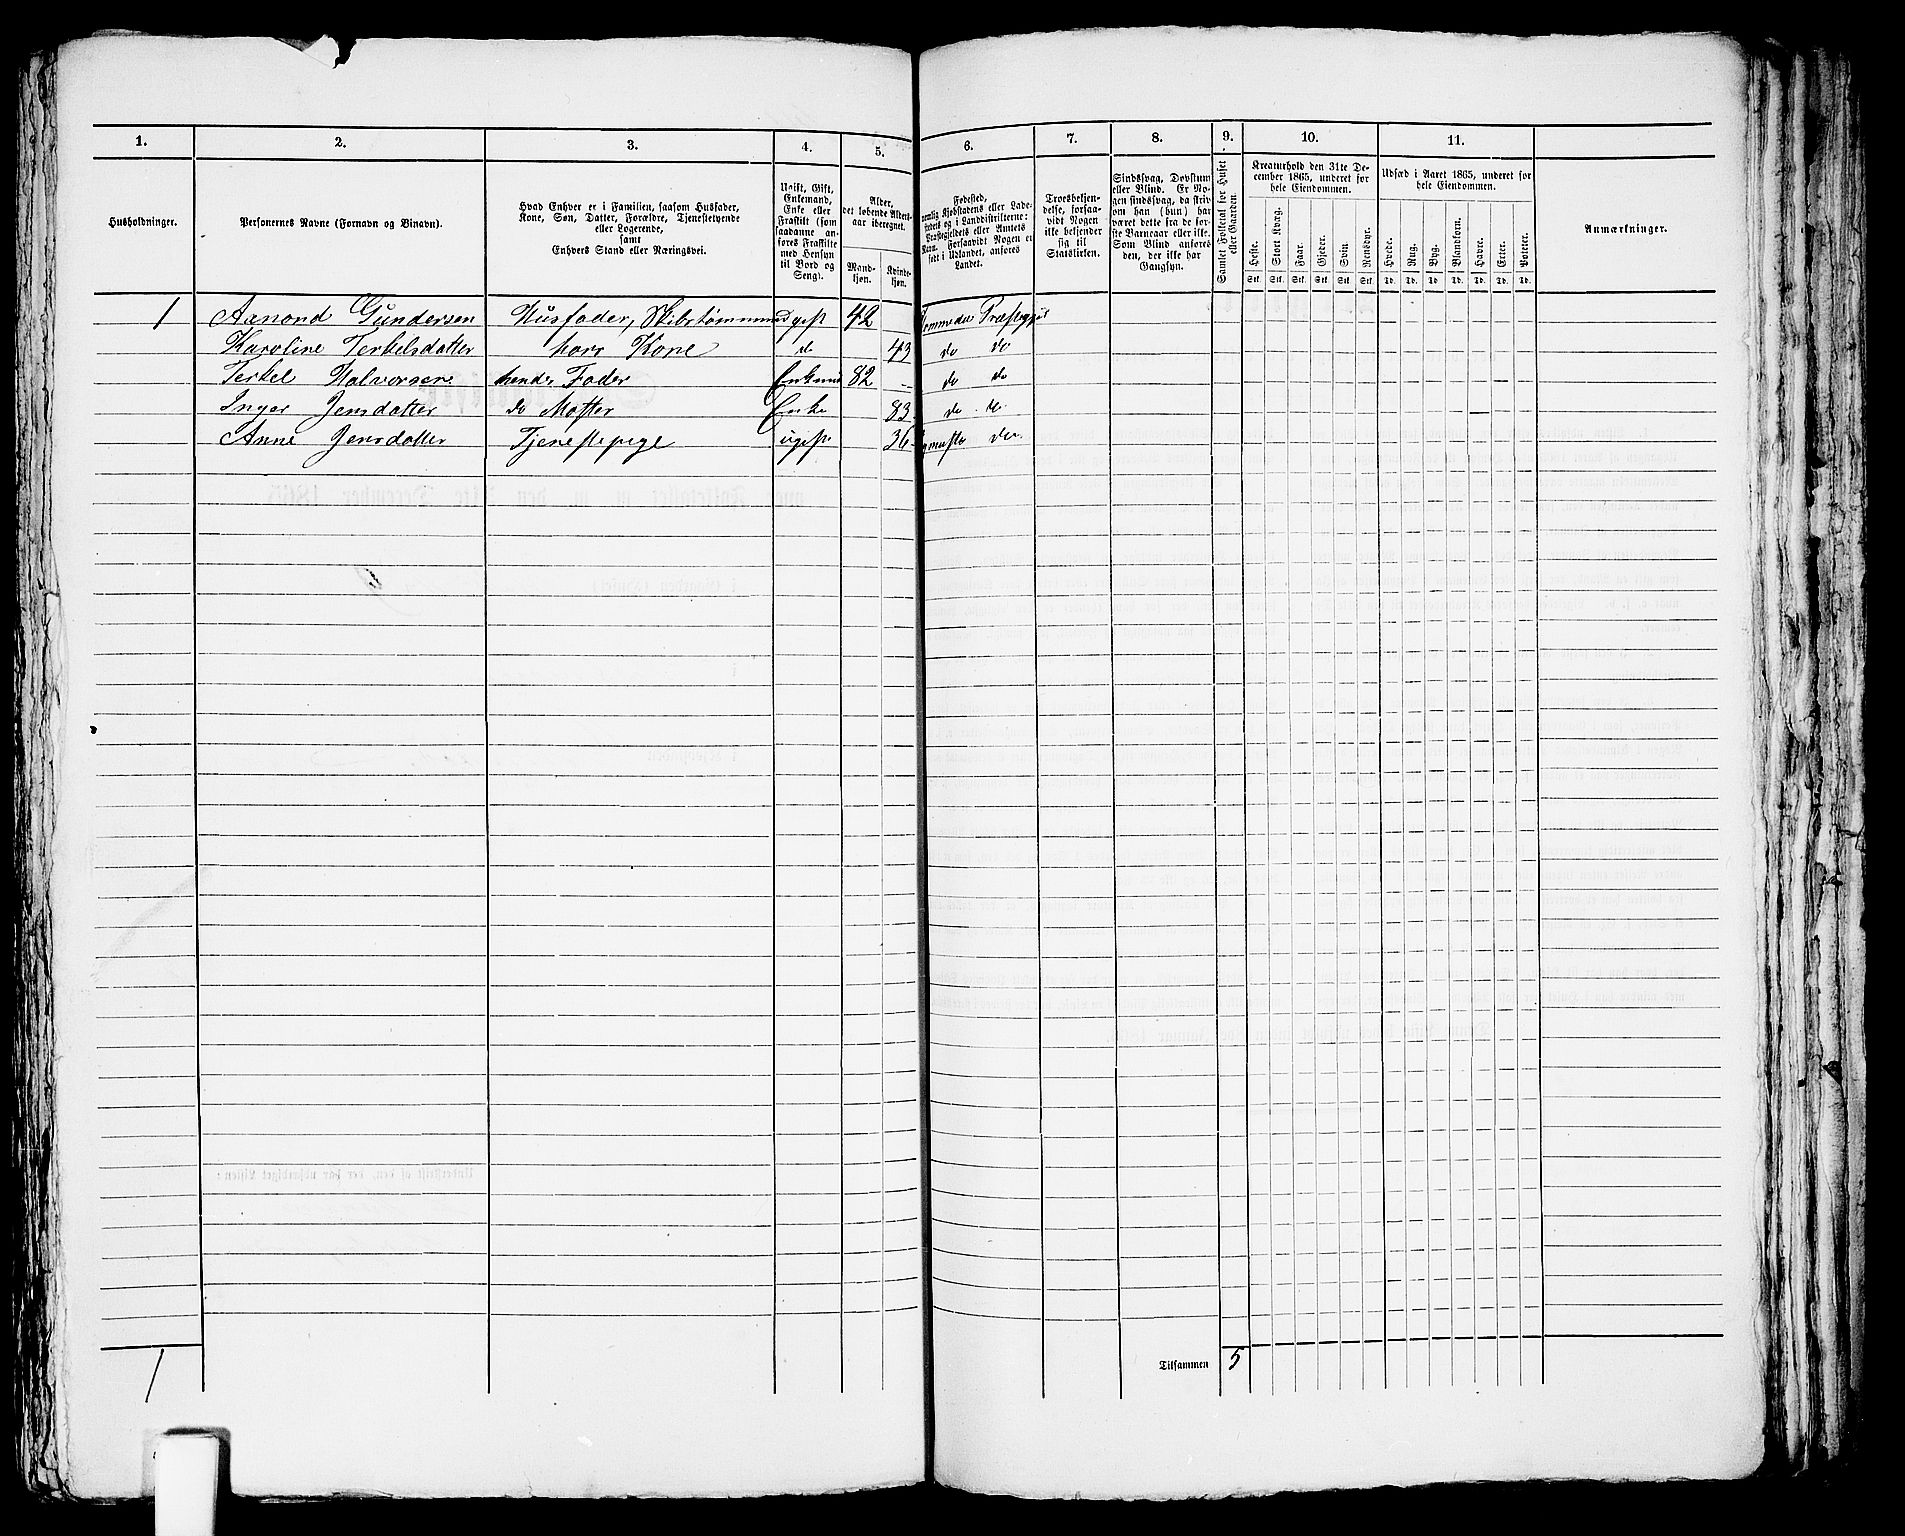 1. 2. 3. 4. 5. 6. 7. 8. 9. 10. 11.
Husholdninger.
Personernes Navne (Fornavn og Binavn).
Hvad Enhver er i Familien, saasom Husfader,
Kone, Søn, Datter, Forældre, Tjenestetyende
eller Logerende,
samt
Enhvers Stand eller Næringsvei.
Ugift, Gift,
Enkemand,
Enke eller
Fraskilt (som
saadanne an-
føres Fraskilte
med Hensyn
til Bord og
Seng).
Alder,
det løbende Alders-
aar iberegnet.
Mand-
kjøn.
Kvinde-
kjøn.
Fødested,
nemlig Kjøbstadens eller Lade-
stedets og i Landdistrikterne:
Præstegjeldets eller Amtets
Navn. Forsaavidt Nogen er
født i Udlandet, anføres
Landet.
Troesbekjen-
delse, forsaa-
vidt Nogen
ikke bekjender
sig til
Statskirken.
Sindssvag, Døvstum
eller Blind. Er No-
gen sindssvag, da skriv
om han (hun) har
været dette fra de før-
ste Barneaar eller ikke.
Som Blind anføres
den, der ikke har
Gangsyn.
Samlet Folketal for Huset
eller Gaarden.
Kreaturhold den 31te De-
cember 1865, underet for
hele Eiendommen.
Heste. Stort Kvæg. Faar. Gjeder. Svin. Rensdyr.
Stk. Stk. Stk. Stk. Stk. Stk.
Udsæd i Aaret 1865, underet for
hele Eiendommen.
Hvede. Rug. Byg. Blandkorn. Havre. Erter. Poteter.
Td. Td. Td. Td. Td. Td. Td.
Anmærkninger.
1 Aanond Gundersen Husfader, Skibstømmermand gift 42
Karoline Terkelsdatter hans Kone do 43 do do
Terkel Halvorsen hendes Fader Enkmd 82 do do
Inger Jensdatter do Moster Enke 83 do do
Anne Jensdatter Tjenestepige ugift 36 do
Tilsammen 5
1